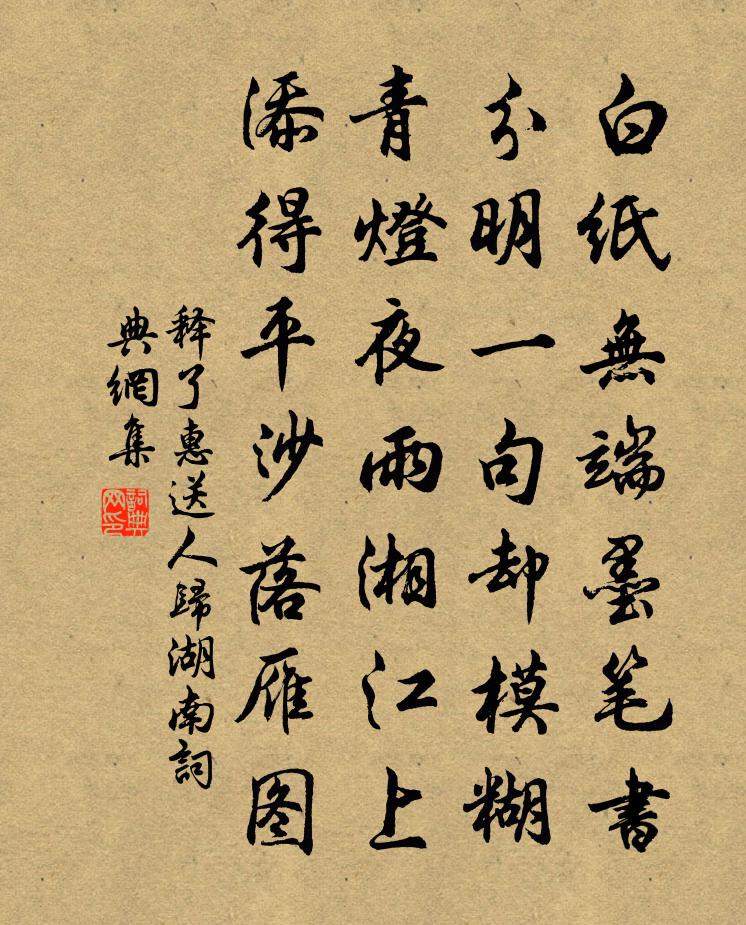 白紙無端墨笔書
分明一句却模糊
青燈夜雨湘江上
添得平沙落雁图
释了惠送人歸湖南詞
典網集
詞典網印